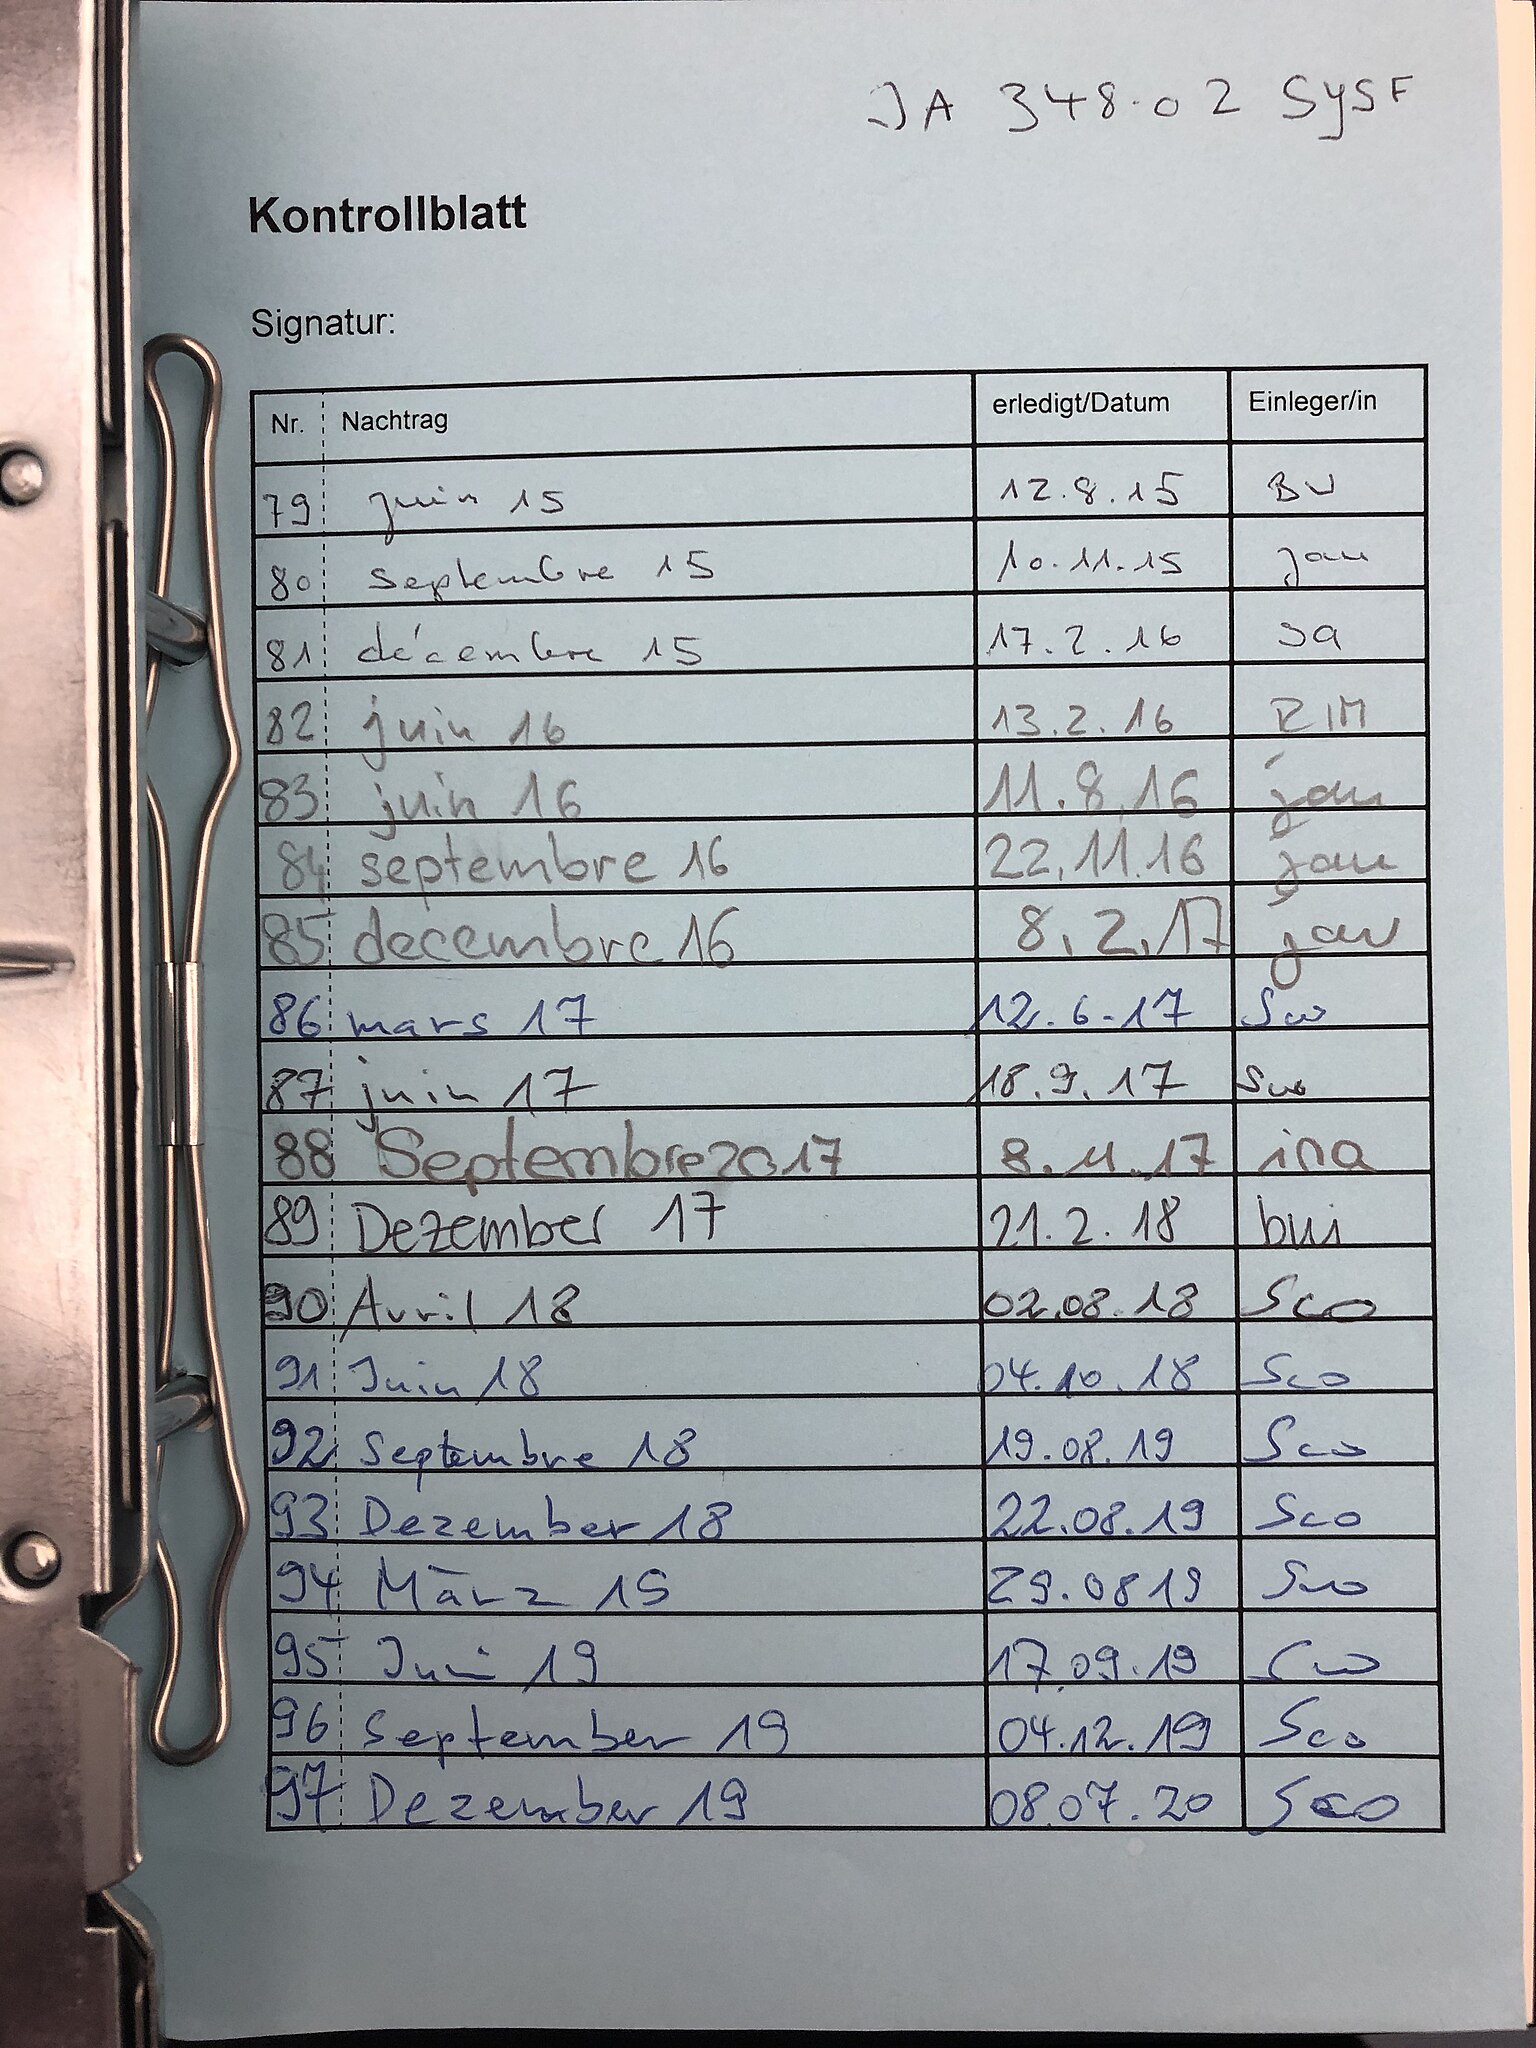 JA 348.02 SYSF
Kontrollblatt
Signatur:
Nr. Nachtrag erledigt/Datum Einleger/in
79 juin 15 12.8.15 BU
80 septembre 15 10.11.15 jau
81 décembre 15 17.2.16 sa
82 juin 16 13.2.16 RIM
83 juin 16 11.8.16 jau
84 septembre 16 22.11.16 jau
85 decembre 16 8.2.17 jau
86 mars 17 12.6.17
87 juin 17 18.9.17
88 Septembre 2017 8.11.17 ina
89 Dezember 17 21.2.18 bui
90 Avril 18 02.08.18 Sco
91 Juin 18 04.10.18 Sco
92 Septembre 18 19.08.19 Sco
93 Dezember 18 22.08.19 Sco
94 März 19 29.0819 Sco
95 Juni 19 17.09.19 Sco
96 September 19 04.12.19 Sco
97 Dezember 19 08.07.20 Sco